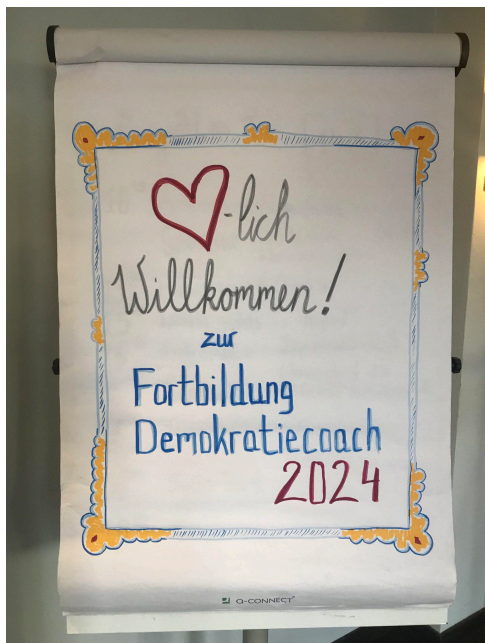 -lich
Willkommen!
zur
Fortbildung
Demokratiecoach
2024
Q-CONNECT